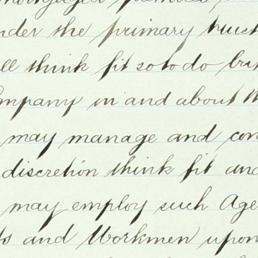 nder the primary trust
ll think fit so to do but
ompany in and about th
may manage and con
discretion think fit and
may employ such Age
ts and Workmen upon